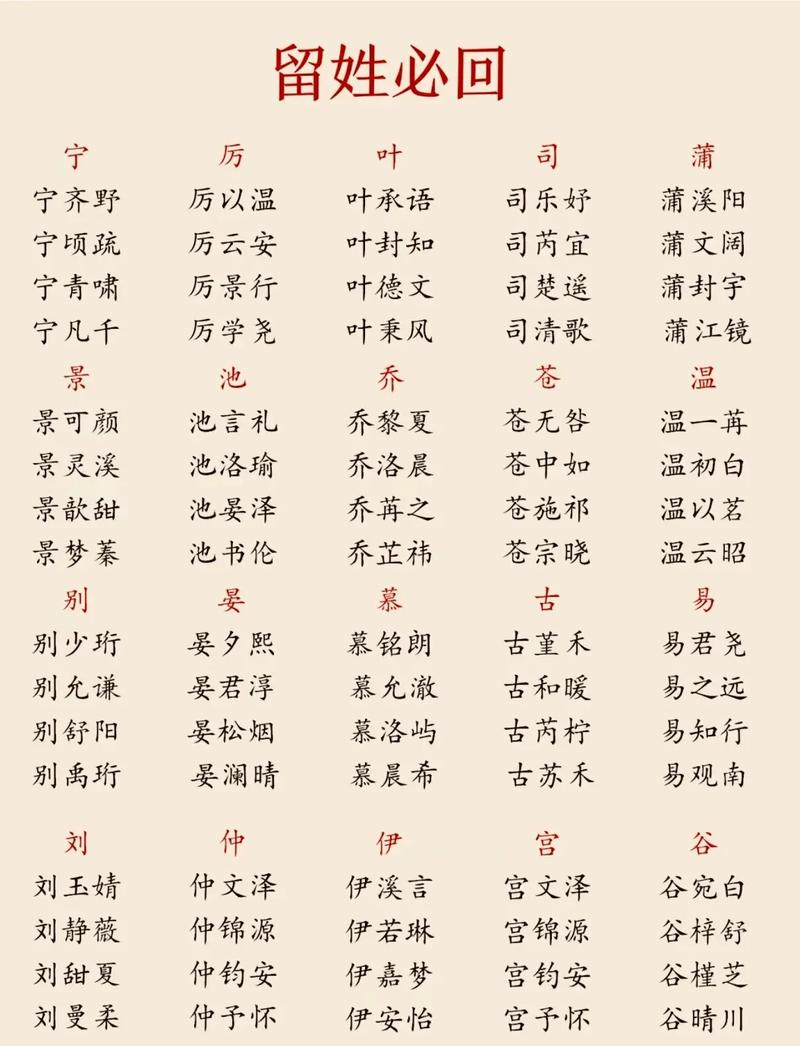 留姓必回
宁 厉 叶 司 蒲
宁齐野 厉以温 叶承语 司乐妤 蒲溪阳
宁顷疏 厉云安 叶封知 司芮宜 蒲文阔
宁青啸 厉景行 叶德文 司楚遥 蒲封宇
宁凡千 厉学尧 叶秉风 司清歌 蒲江镜
景 池 乔 苍 温
景可颜 池言礼 乔黎夏 苍无咎 温一苒
景灵溪 池洛瑜 乔洛晨 苍中如 温初白
景歆甜 池晏泽 乔苒之 苍施祁 温以茗
景梦蓁 池书伦 乔芷祎 苍宗晓 温云昭
别 晏 慕 古 易
别少珩 晏夕熙 慕铭朗 古堇禾 易君尧
别允谦 晏君淳 慕允澈 古和暖 易之远
别舒阳 晏松烟 慕洛屿 古芮柠 易知行
别禹珩 晏澜晴 慕晨希 古苏禾 易观南
刘 仲 伊 宫 谷
刘玉婧 仲文泽 伊溪言 宫文泽 谷宛白
刘静薇 仲锦源 伊若琳 宫锦源 谷梓舒
刘甜夏 仲钧安 伊嘉梦 宫钧安 谷槿芝
刘曼柔 仲予怀 伊安怡 宫予怀 谷晴川